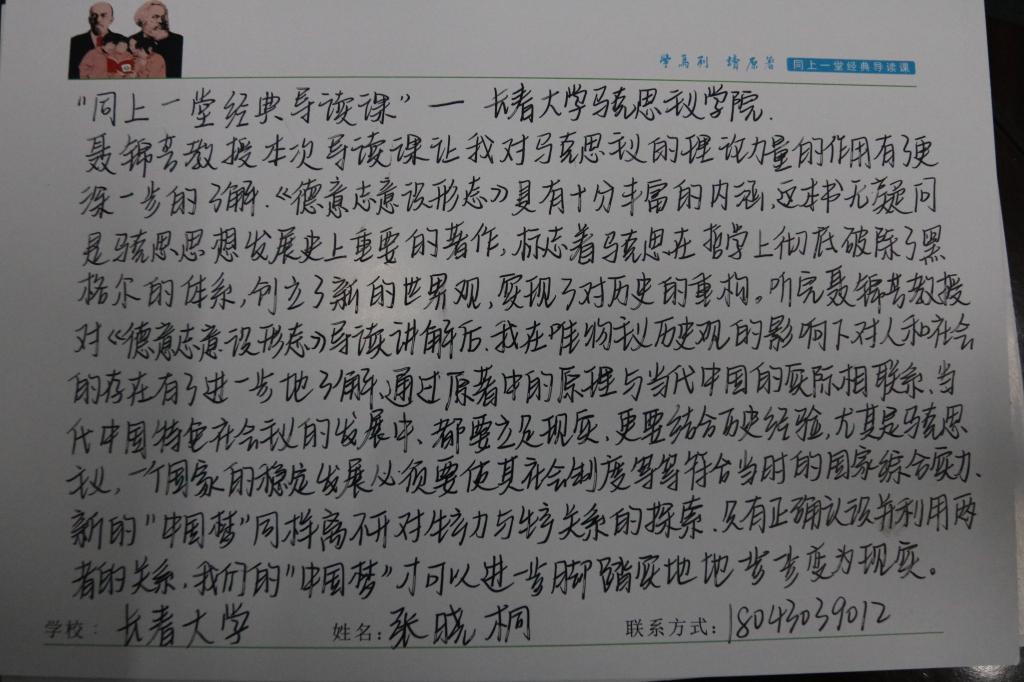 学马列 读原著 同上一堂经典导读课
“同上一堂经典导读课”— 长春大学马克思主义学院.
聂锦芳教授本次导读课让我对马克思主义的理论力量的作用有了更
深一步的了解.《德意志意识形态》具有十分丰富的内涵,这本书无疑问
是马克思思想发展史上重要的著作,标志着马克思在哲学上彻底破除了黑
格尔的体系,创立了新的世界观,实现了对历史的重构。听完聂锦芳教授
对《德意志意识形态》导读讲解后、我在唯物主义历史观的影响下对人和社会
的存在有了进一步地了解、通过原著中的原理与当代中国的实际相联系、当
代中国特色社会主义的发展中、都要立足现实、更要结合历史经验,尤其是马克思
主义,一个国家的稳定发展必须要使其社会制度等等符合当时的国家综合实力、
新的“中国梦”同样离不开对生产力与生产关系的探索、只有正确认识并利用两
者的关系,我们的“中国梦”才可以进一步脚踏实地地步步变为现实。
学校: 长春大学 姓名: 张晓桐 联系方式: 18043039012